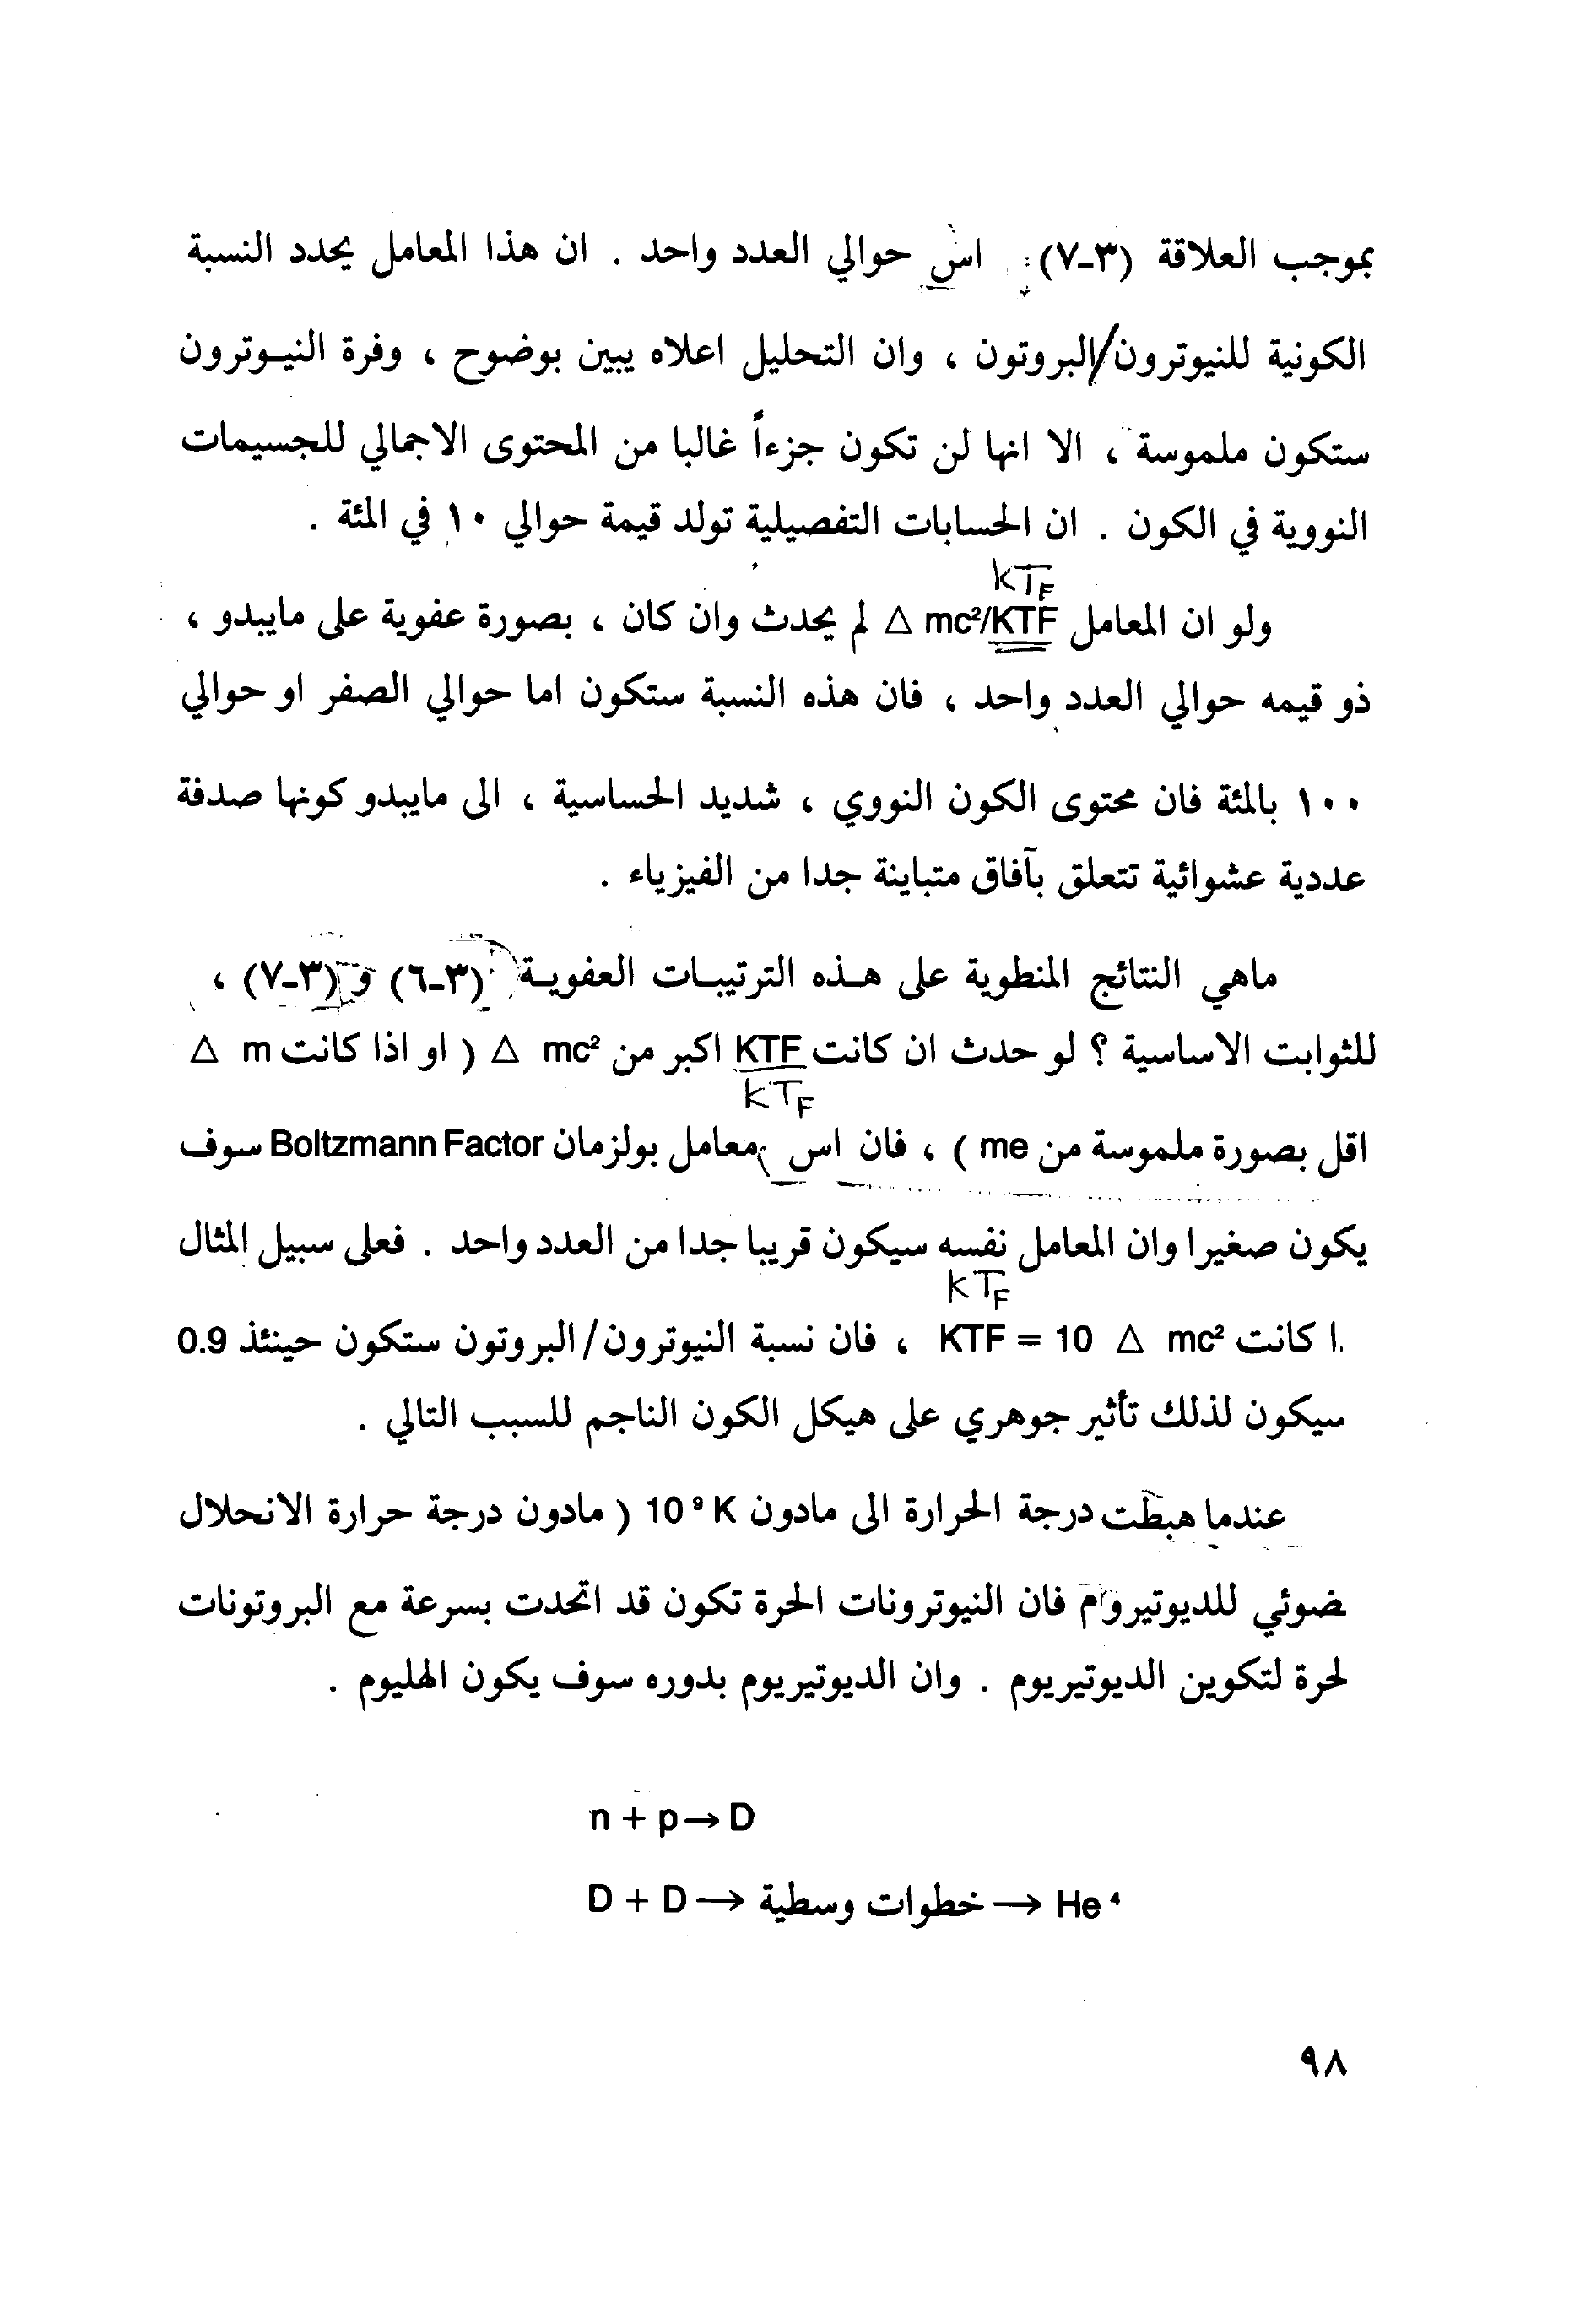 بموجب العلاقة (٣-٧) اس حوالي العدد واحد . ان هذا المعامل يحدد النسبة
الكونية للنيوترون/البروتون ، وان التحليل اعلاه يبين بوضوح ، وفرة النيوترون
ستكون ملموسة ، الا انها لن تكون جزءاً غالبا من المحتوى الاجمالي للجسيمات
النووية في الكون . ان الحسابات التفصيلية تولد قيمة حوالي ١٠ في المئة .
KTF
ولو ان المعامل Δ mc²/KTF لم يحدث وان كان ، بصورة عفوية على مايبدو ،
ذو قيمه حوالي العدد واحد ، فان هذه النسبة ستكون اما حوالي الصفر او حوالي
١٠٠ بالمئة فان محتوى الكون النووي ، شديد الحساسية ، الى مايبدو كونها صدفة
عددية عشوائية تتعلق بآفاق متباينة جدا من الفيزياء .
ماهي النتائج المنطوية على هذه الترتيبات العفوية (٣-٦) و (٣-٧) ،
للثوابت الاساسية ؟ لو حدث ان كانت KTF اكبر من Δ mc² ( او اذا كانت Δ m
KTF
اقل بصورة ملموسة من me ) ، فان اس معامل بولزمان Boltzmann Factor سوف
يكون صغيرا وان المعامل نفسه سيكون قريبا جدا من العدد واحد . فعلى سبيل المثال
KTF
ا كانت KTF = 10 Δ mc² ، فان نسبة النيوترون/البروتون ستكون حينئذ 0.9
سيكون لذلك تأثير جوهري على هيكل الكون الناجم للسبب التالي .
عندما هبطت درجة الحرارة الى مادون 10⁹ K ( مادون درجة حرارة الانحلال
ضوئي للديوتيروم فان النيوترونات الحرة تكون قد اتحدت بسرعة مع البروتونات
لحرة لتكوين الديوتيريوم . وان الديوتيريوم بدوره سوف يكون الهليوم .
n + p → D
D + D → خطوات وسطية → He⁴
٩٨